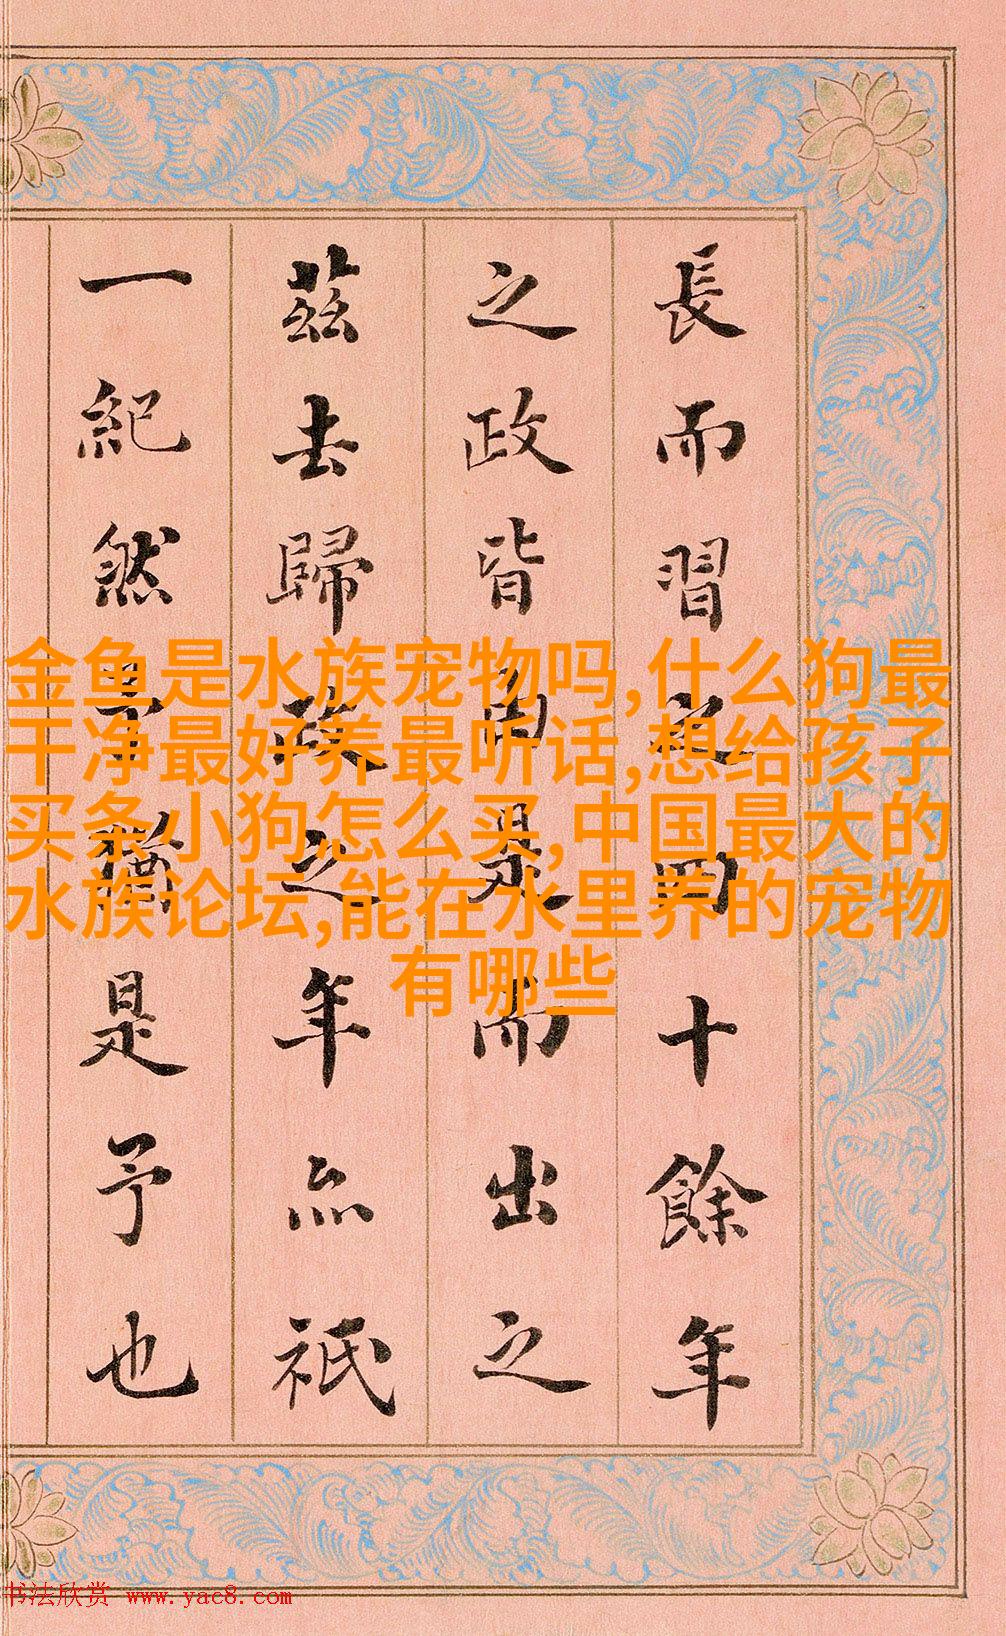 長而習之四十餘年
之政皆由是而出之
茲去歸政之年亦祇
一紀然予猶是予也
金鱼是水族宠物吗,什么狗最
干净最好养最听话,想给孩子
买条小狗怎么买,中国最大的
水族论坛,能在水里养的宠物
有哪些
书法欣赏 www.yac8.com